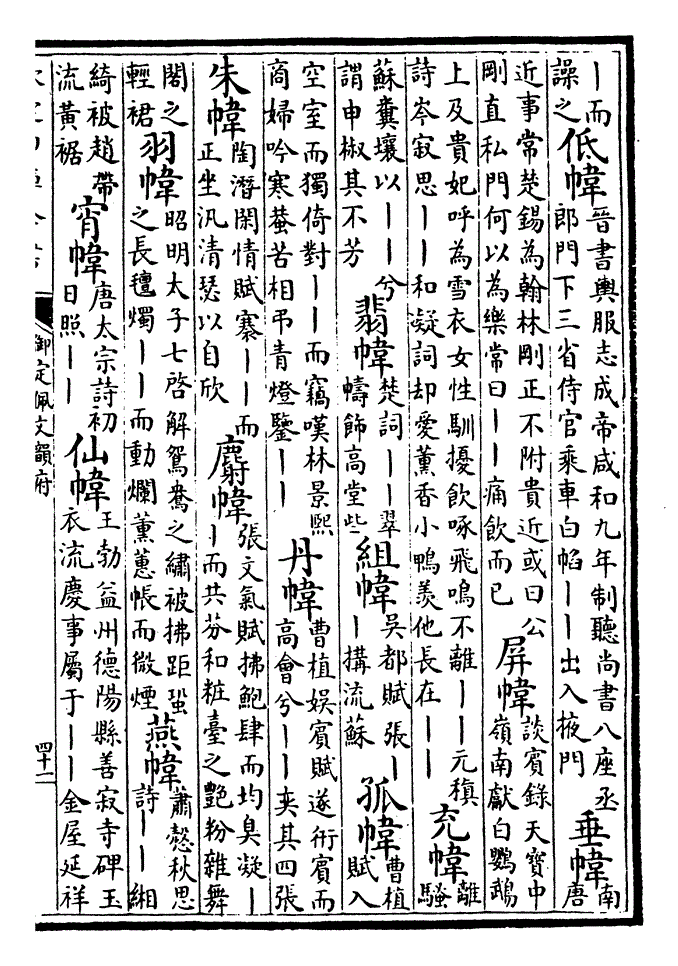 ｜而
譟之
低幃
晉書輿服志成帝咸和九年制聽尚書八座丞
郎門下三省侍官乘車白㡊｜｜出入掖門
垂幃
南
唐
近事常楚錫為翰林剛正不附貴近或曰公
剛直私門何以為樂常曰｜｜痛飲而已
屏幃
談賓錄天寶中
嶺南獻白鸚鵡
上及貴妃呼為雪衣女性馴擾飲啄飛鳴不離｜｜元稹
詩岑寂思｜｜和凝詞却愛薰香小鴨羨他長在｜｜
充幃
離
騷
蘇糞壤以｜｜兮
謂申椒其不芳
翡幃
楚詞｜｜翠
幬飾高堂些
組幃
吳都賦張｜
｜搆流蘇
孤幃
曹植
賦入
空室而獨倚對｜｜而竊嘆林景熙
商婦吟寒蛬苦相弔青燈鑒｜｜
丹幃
曹植娛賓賦遂衎賓而
高會兮｜｜奕其四張
朱幃
陶潛閑情賦褰｜｜而
正坐汎清瑟以自欣
麝幃
張文氣賦拂鮑肆而均臭凝｜
｜而共芬和粧臺之艷粉雜舞
閣之
輕裙
羽幃
昭明太子七啓解鴛鴦之繡被拂距蛩
之長氊燭｜｜而動爛薰蕙帳而微煙
燕幃
蕭慤秋思
詩｜｜緗
綺被趙帶
流黃裾
宵幃
唐太宗詩初
日照｜｜
仙幃
王勃益州德陽縣善寂寺碑玉
衣流慶事屬于｜｜金屋延祥
御定佩文韻府
四十一